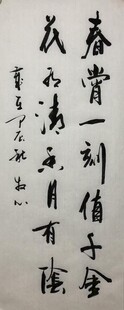 春宵一刻值千金
花有清香月有陰